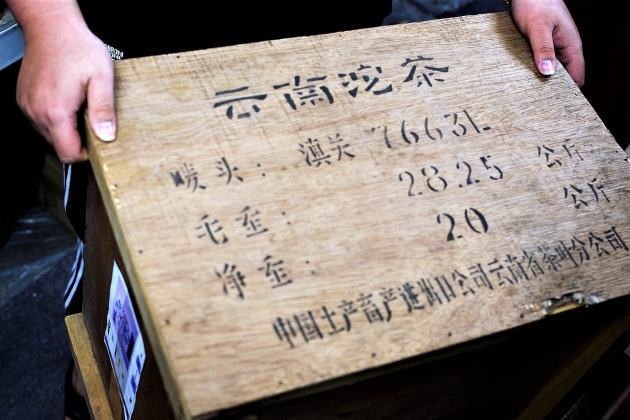 云南沱茶
唛头： 滇关 7663L
毛重： 28.25 公斤
净重： 20 公斤
中国土产畜产进出口公司云南省茶叶分公司